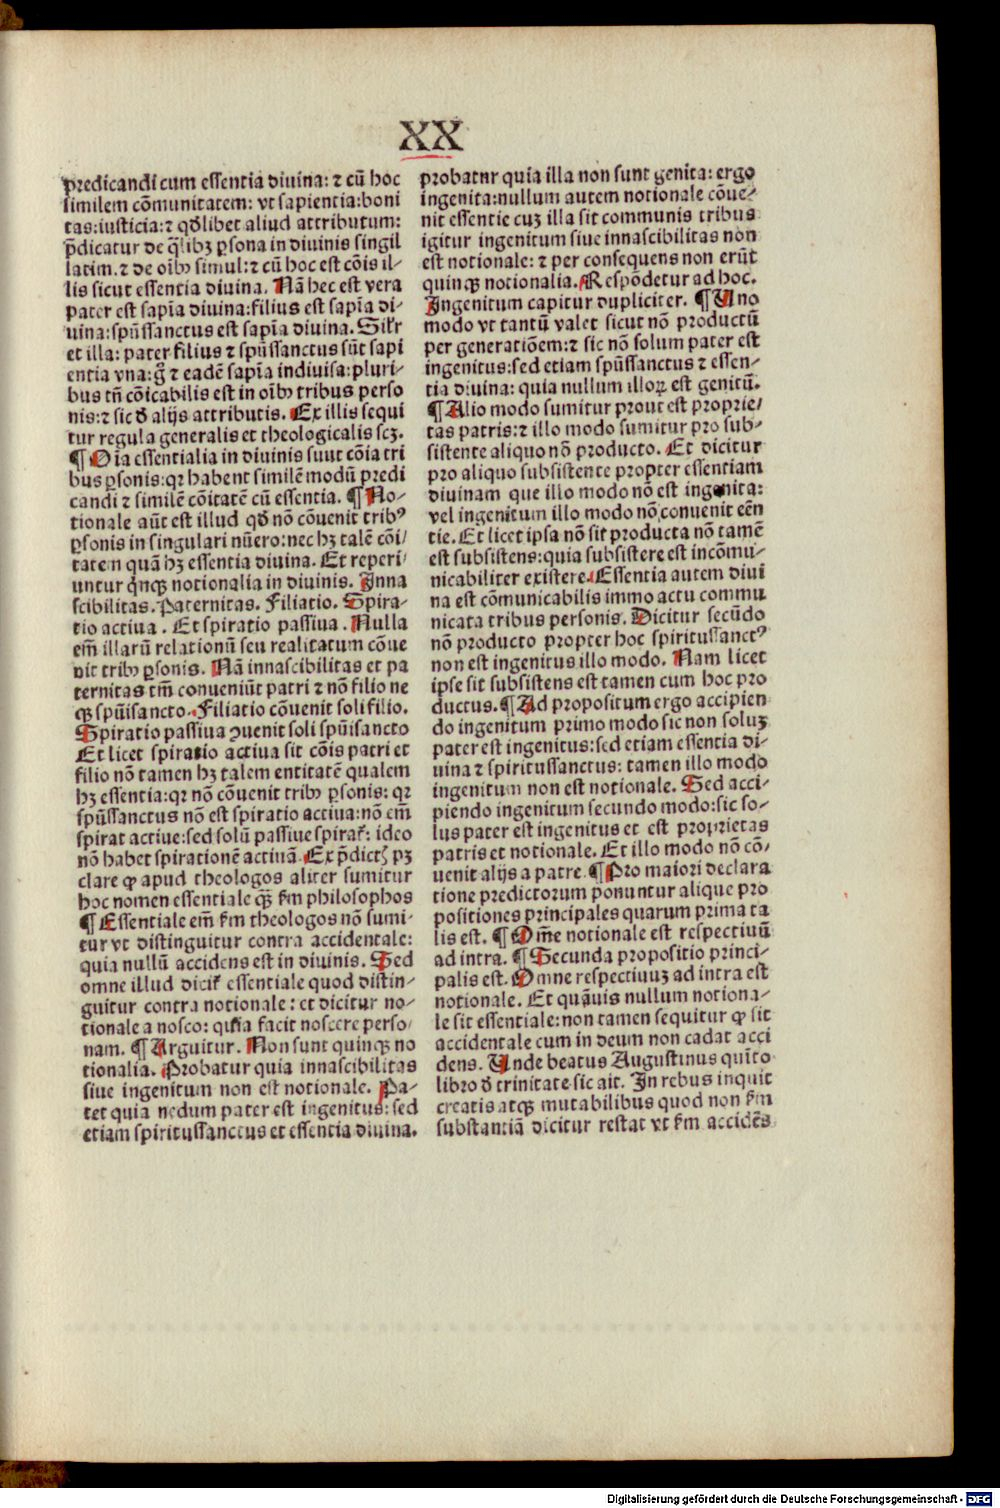 XX
predicandi cum essentia diuina: ⁊ cū hoc
similem cōmunitatem: vt sapientia: boni
tas: iusticia: ⁊ qđlibet aliud attributum:
p̄dicatur de q̄libꝫ ꝑsona in diuinis singil
latim. ⁊ de oībꝰ simul: ⁊ cū hoc est cōis il-
lis sicut essentia diuina. Nā hec est vera
pater est sapīa diuina: filius est sapīa di-
uina: spūssanctus est sapīa diuina. Silr
et illa: pater filius ⁊ spūssanctus sūt sapi
entia vna: gͦ ⁊ eadē sapīa indiuisa: pluri-
bus tn̄ cōicabilis est in oībꝰ tribus perso
nis: ⁊ sic đ alijs attributis. Ex illis sequi
tur regula generalis et theologicalis scꝫ.
¶ Oīa essentialia in diuinis sunt cōia tri
bus ꝑsonis: qꝛ habent similē modū predi
candi ⁊ similē cōitatē cū essentia. ¶ No-
tionale aūt est illud qđ nō cōuenit tribꝰ
ꝑsonis in singulari nūero: nec hꝫ talē cōi/
tatem quā hꝫ essentia diuina. Et reperi/
untur qͥnqꝫ notionalia in diuinis. Inna
scibilitas. Paternitas. Filiatio. Spira-
tio actiua. Et spiratio passiua. Nulla
em̄ illarū relationū seu realitatum cōue
nit tribꝰ ꝑsonis. Nā innascibilitas et pa
ternitas tm̄ conueniūt patri ⁊ nō filio ne
qꝫ spūisancto. Filiatio cōuenit soli filio.
Spiratio passiua ꝯuenit soli spūisancto
Et licet spiratio actiua sit cōis patri et
filio nō tamen hꝫ talem entitatē qualem
hꝫ essentia: qꝛ nō cōuenit tribꝰ ꝑsonis: qꝛ
spūssanctus nō est spiratio actiua: nō em̄
spirat actiue: sed solū passiue spirat̄: ideo
nō habet spirationē actiuā. Ex p̄dictꝭ pꝫ
clare ꝙ apud theologos aliter sumitur
hoc nomen essentiale qꝫ̄ ẜm philosophos
¶ Essentiale em̄ ẜm theologos nō sumi-
tur vt distinguitur contra accidentale:
quia nullū accidens est in diuinis. Sed
omne illud dicit̄ essentiale quod distin-
guitur contra notionale: et dicitur no-
tionale a nosco: qͥa facit noscere perso/
nam. ¶ Arguitur. Non sunt quinqꝫ no
tionalia. Probatur quia innascibilitas
siue ingenitum non est notionale. Pa-
tet quia nedum pater est ingenitus: sed
etiam spiritussanctus et essentia diuina.
probatur quia illa non sunt genita: ergo
ingenita: nullum autem notionale cōue-
nit essentie cuꝫ illa sit communis tribus
igitur ingenitum siue innascibilitas non
est notionale: ⁊ per consequens non erūt
quinqꝫ notionalia. Respōdetur ad hoc.
Ingenitum capitur dupliciter. ¶ Uno
modo vt tantū valet sicut nō productū
per generatiōem: ⁊ sic nō solum pater est
ingenitus: sed etiam spūssanctus ⁊ essen-
tia diuina: quia nullum illoꝝ est genitū.
¶ Alio modo sumitur prout est proprie/
tas patris: ⁊ illo modo sumitur pro sub-
sistente aliquo nō producto. Et dicitur
pro aliquo subsistente propter essentiam
diuinam que illo modo nō est ingenita:
vel ingenitum illo modo nō conuenit eēn
tie. Et licet ipsa nō sit producta nō tamē
est subsistens: quia subsistere est incōmu-
nicabiliter existere. Essentia autem diui
na est cōmunicabilis immo actu commu
nicata tribus personis. Dicitur secūdo
nō producto propter hoc spiritussanctꝰ
non est ingenitus illo modo. Nam licet
ipse sit subsistens est tamen cum hoc pro
ductus. ¶ Ad propositum ergo accipien
do ingenitum primo modo sic non soluꝫ
pater est ingenitus: sed etiam essentia di-
uina ⁊ spiritussanctus: tamen illo modo
ingenitum non est notionale. Sed acci-
piendo ingenitum secundo modo: sic so-
lus pater est ingenitus et est proprietas
patris et notionale. Et illo modo nō cō-
uenit alijs a patre. ¶ Pro maiori declara
tione predictorum ponuntur alique pro
positiones principales quarum prima ta
lis est. ¶ Om̄e notionale est respectiuū
ad intra. ¶ Secunda propositio princi-
palis est. Omne respectiuuꝫ ad intra est
notionale. Et quāuis nullum notiona-
le sit essentiale: non tamen sequitur ꝙ sit
accidentale cum in deum non cadat acci
dens. Unde beatus Augustinus quīto
libro đ trinitate sic ait. In rebus inquit
creatis atqꝫ mutabilibus quod non ẜm
substantiā dicitur restat vt ẜm accidēs
Digitalisierung gefördert durch die Deutsche Forschungsgemeinschaft - DFG